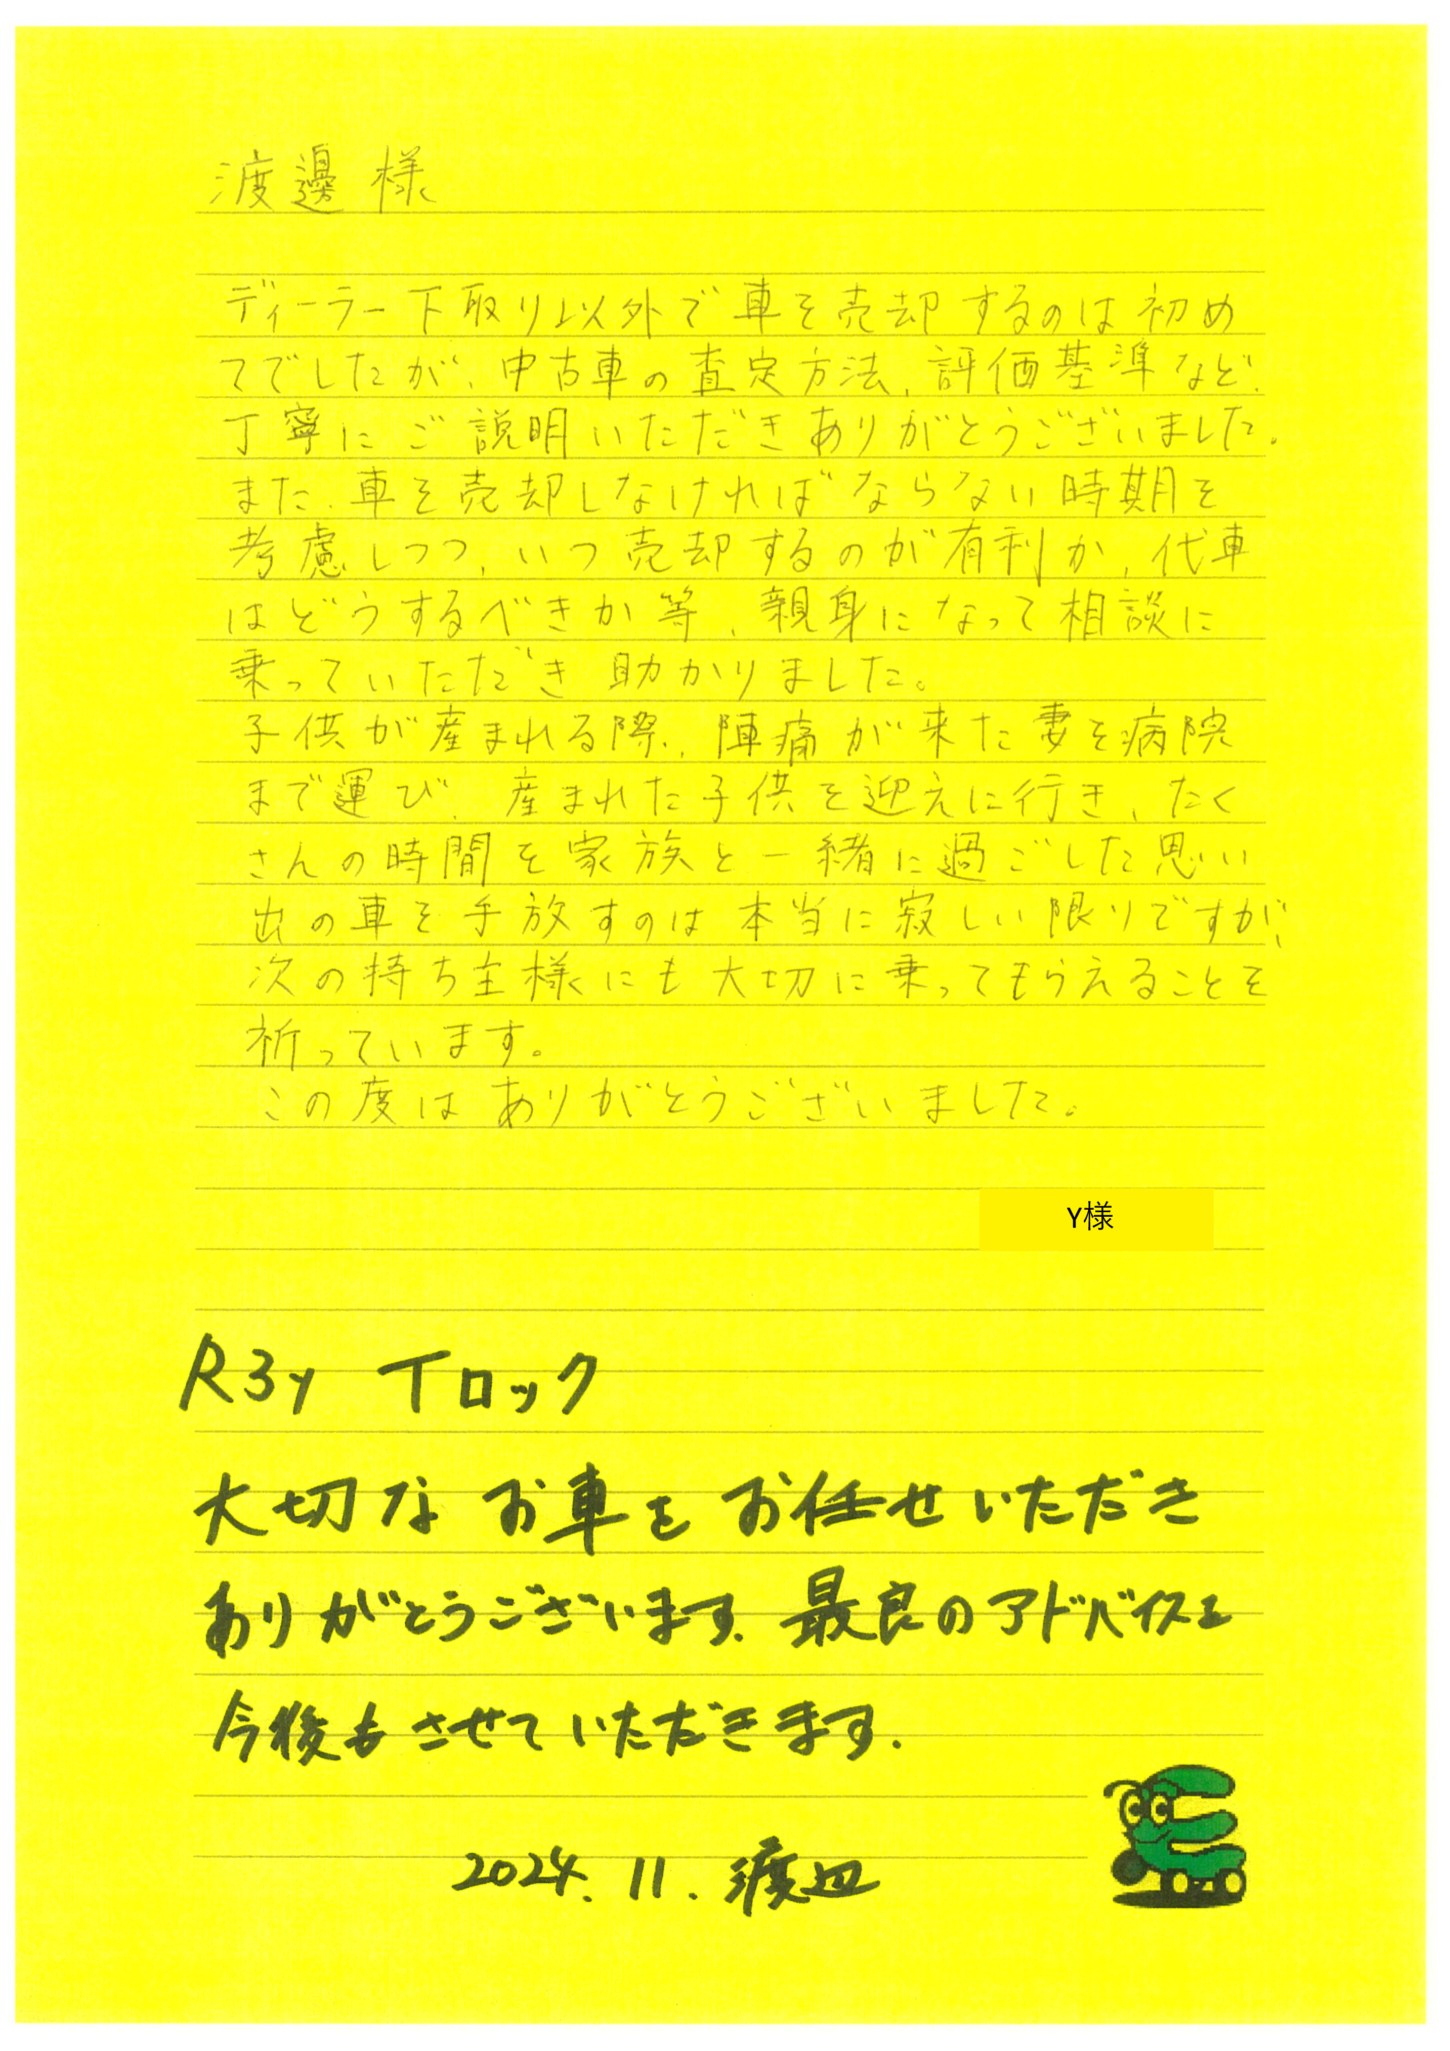 渡邊様
ディーラー下取り以外で車を売却するのは初め
てでしたが、中古車の査定方法、評価基準など、
丁寧にご説明いただきありがとうございました。
また、車を売却しなければならない時期を
考慮しつつ、いつ売却するのが有利か、代車
はどうするべきか等、親身になって相談に
乗っていただき助かりました。
子供が産まれる際、陣痛が来た妻を病院
まで運び、産まれた子供を迎えに行き、たく
さんの時間を家族と一緒に過ごした思い
出の車を手放すのは本当に寂しい限りですが、
次の持ち主様にも大切に乗ってもらえることを
祈っています。
この度はありがとうございました。
Y様
R3y Tロック
大切なお車をお任せいただき
ありがとうございます。最良のアドバイスを
今後もさせていただきます。
2024.11.渡辺